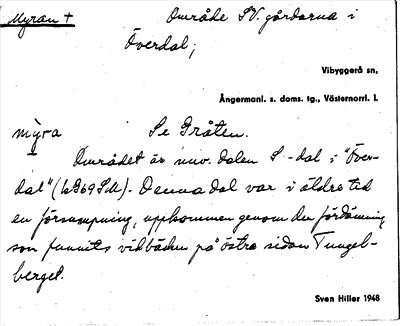 Myran + Område SV. gårdarna i
Överdal;
Vibyggerå sn,
Ångermanl. s. doms. tg., Västernorrl. l.
mỳra Se Gråten.
Området är nuv. dalen S -dal i "Över-
dal" (). Denna dal var i äldre tid
en försumpning, uppkommen genom den fördämning
som funnits vid bäcken på östra sidan Tungel-
berget.
Sven Hiller 1948